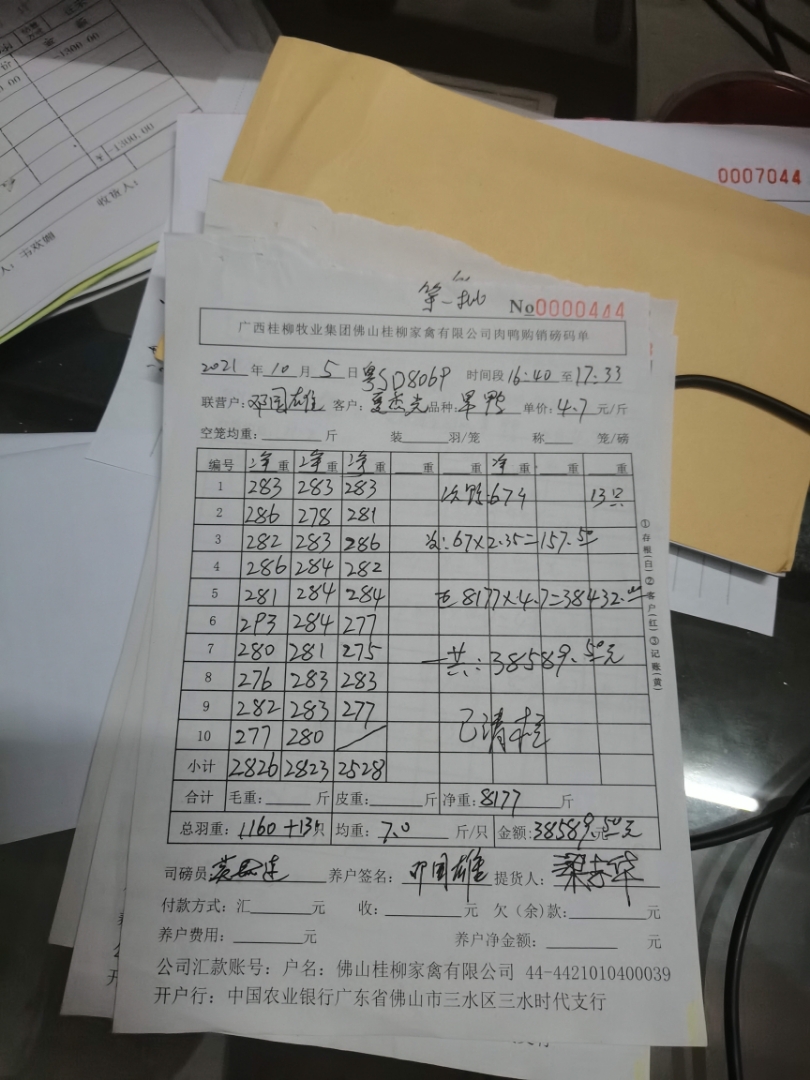 -1300.00
¥-1300.00
收货人:
0007044
第一批 No0000444
广西桂柳牧业集团佛山桂柳家禽有限公司肉鸭购销磅码单
2021年10月5日 粤SD8069 时间段16:40至17:33
联营户:邓国雄 客户:夏杰光 品种:旱鸭 单价:4.7元/斤
空笼均重: 斤 装 羽/笼 称 笼/磅
编号 净重 净重 净重 重 重 净重 重 重
1 283 283 283 次鸭:67斤 13只
2 286 278 281
3 282 283 286 次:67×2.35=157.50
4 286 284 282
5 281 284 284 正8177×4.7=38432.00
6 293 284 277
7 280 281 275 一共:38589.50元
8 276 283 283
9 282 283 277
10 277 280 已清栏
小计 2826 2823 2528
合计 毛重: 斤 皮重: 斤 净重:8177 斤
总羽重:1160+13只 均重:7.0 斤/只 金额:38589.50元
司磅员 养户签名:邓国雄 提货人:
付款方式:汇 元 收: 元 欠(余)款: 元
养户费用: 元 养户净金额: 元
公司汇款账号:户名:佛山桂柳家禽有限公司 44-4421010400039
开户行:中国农业银行广东省佛山市三水区三水时代支行
①存根(白)②客户(红)③记账(黄)